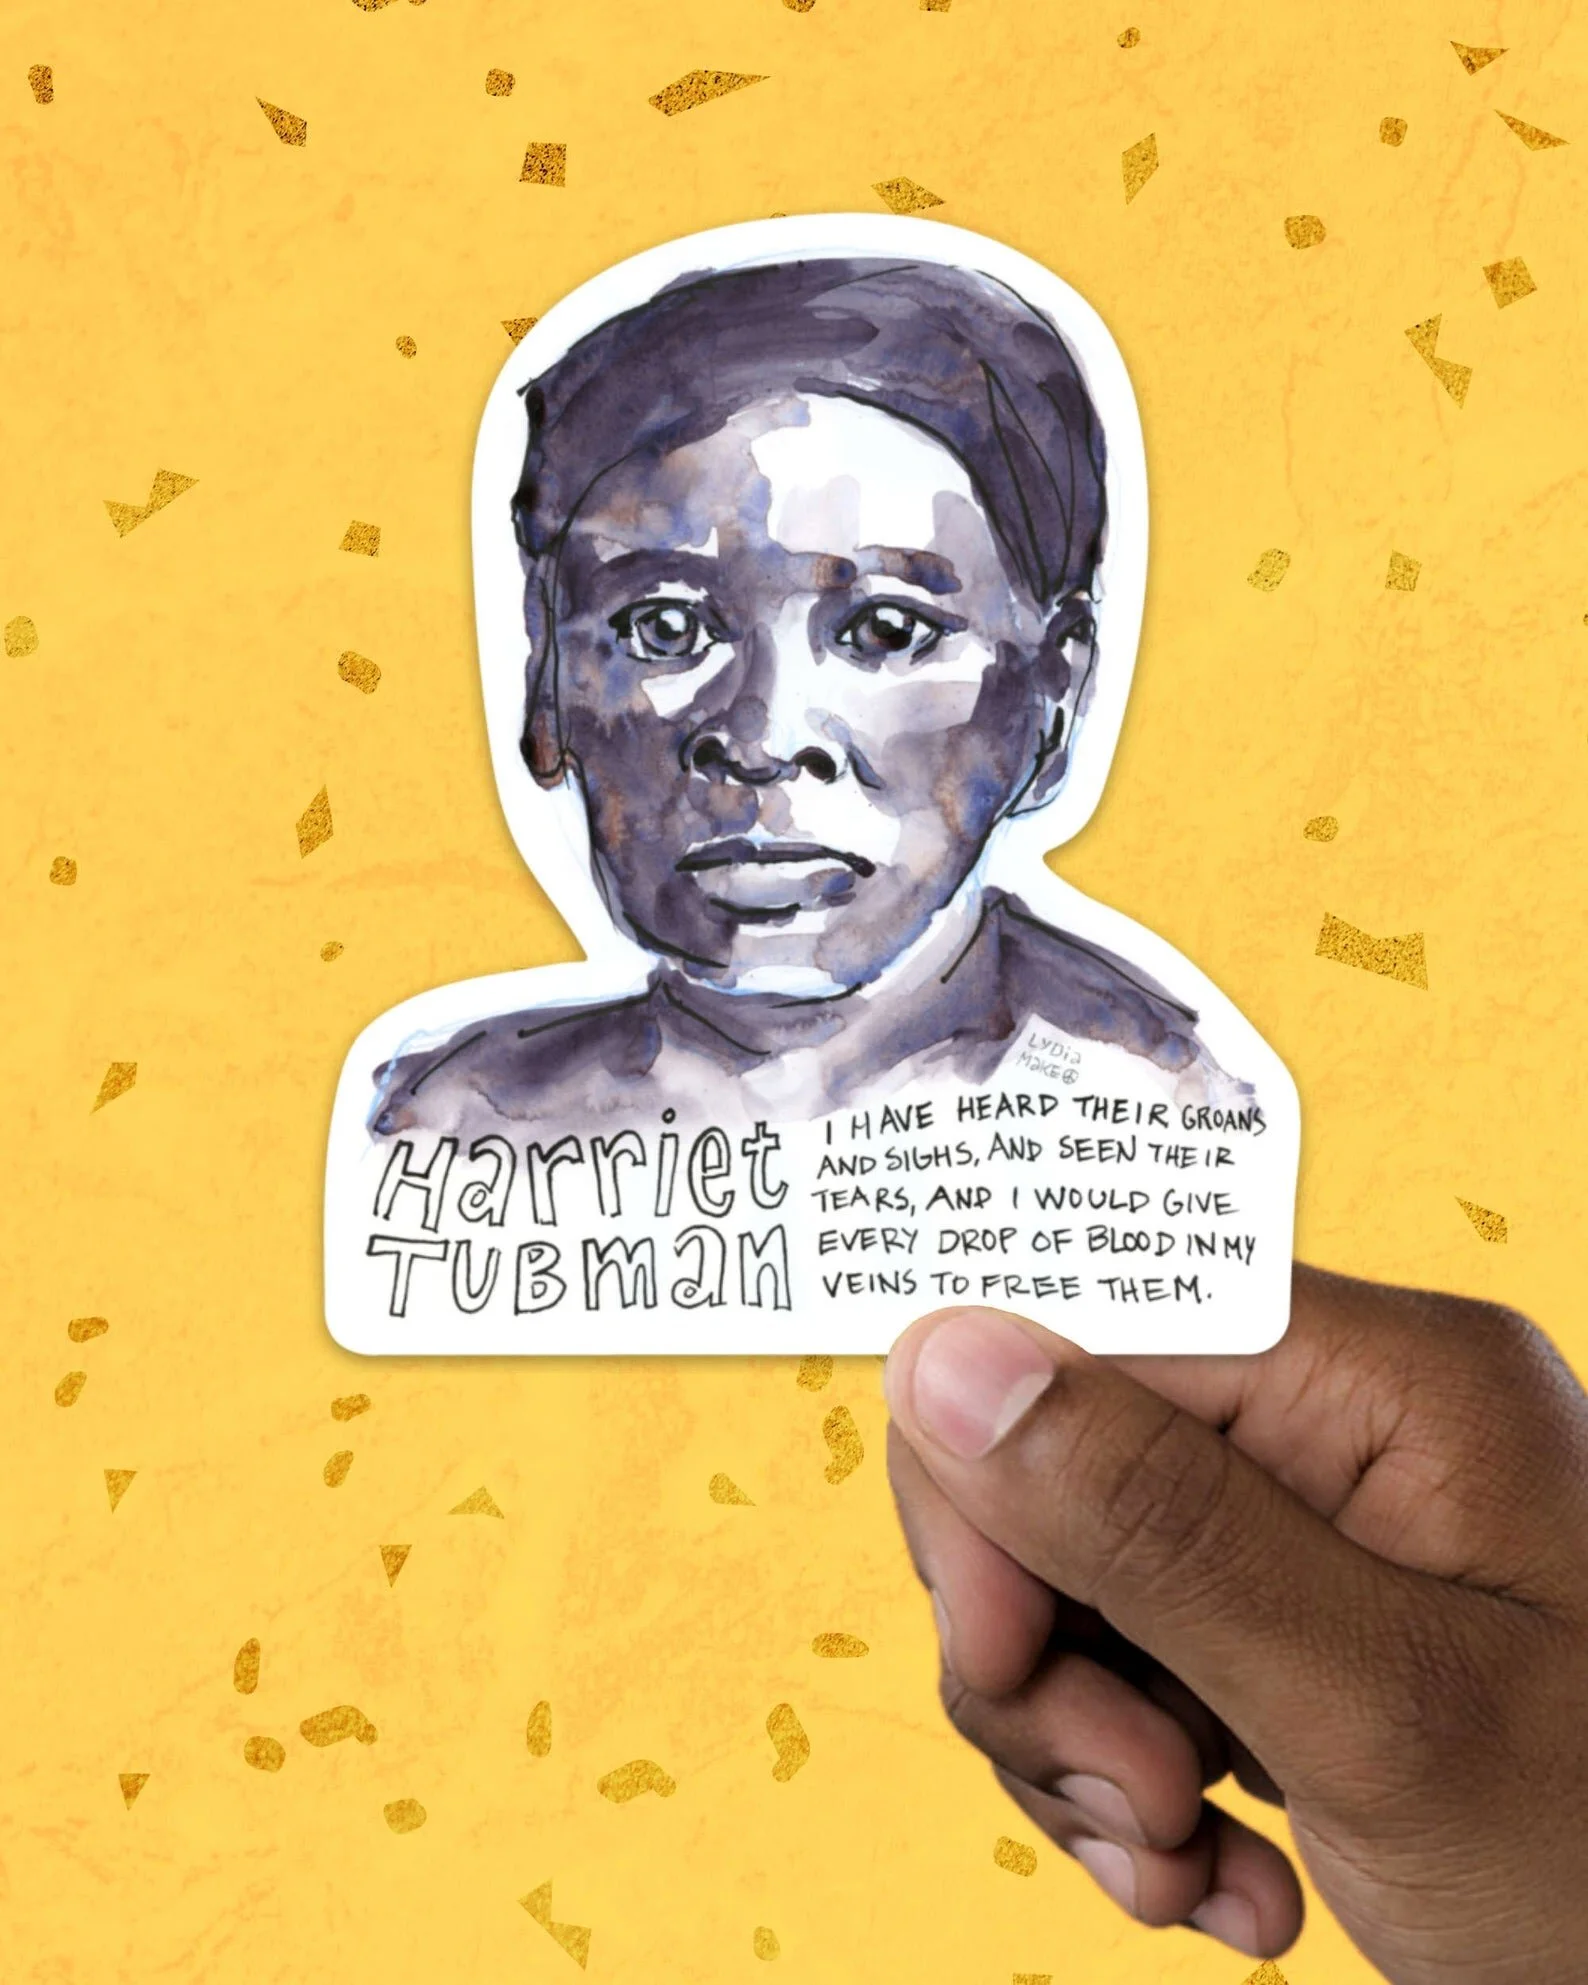 LYDia
MaKE
Harriet
TUBman
I HAVE HEARD THEIR GROANS
AND SIGHS, AND SEEN THEIR
TEARS, AND I WOULD GIVE
EVERY DROP OF BLOOD IN MY
VEINS TO FREE THEM.